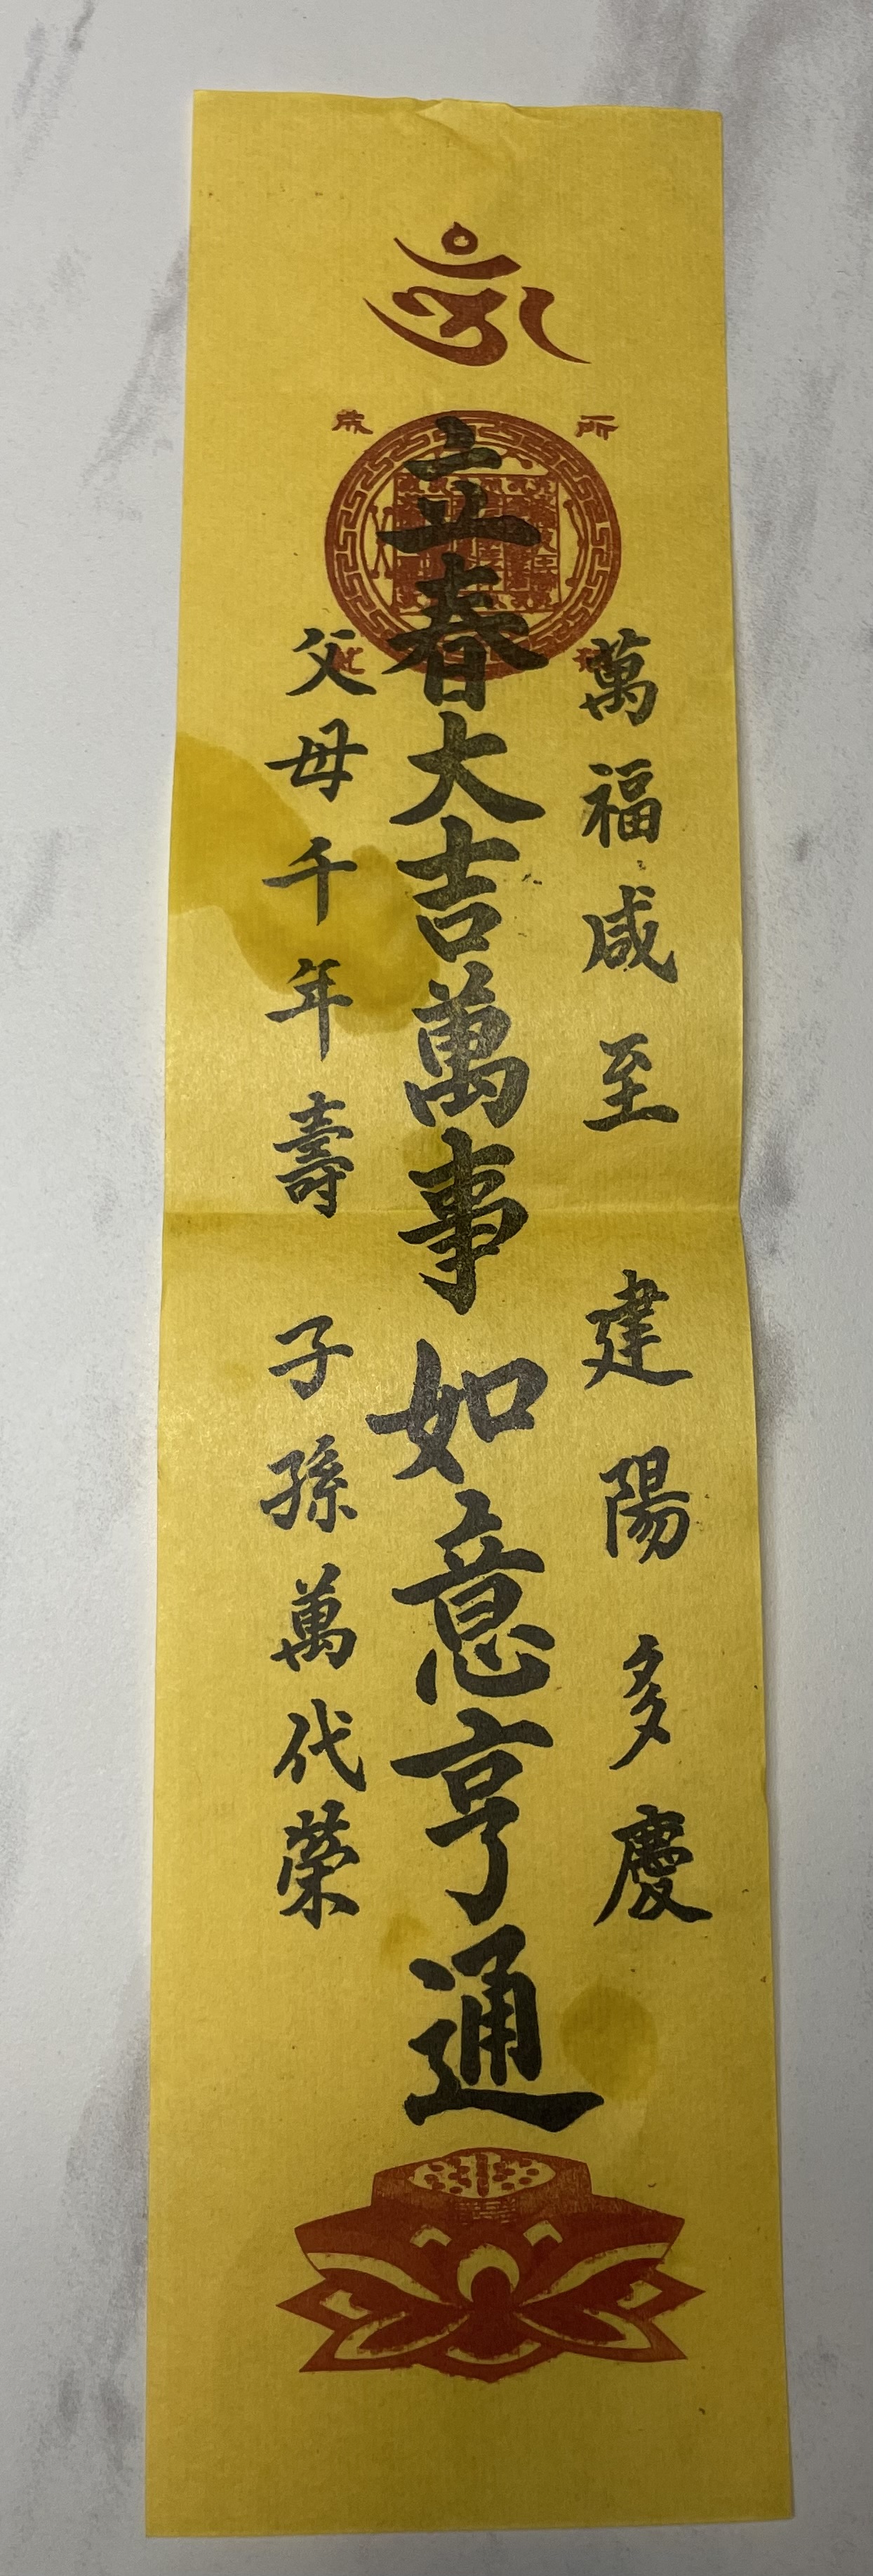 ॐ
所 求 如 此
萬福咸至 建陽多慶
立春大吉萬事如意亨通
父母千年壽 子孫萬代榮